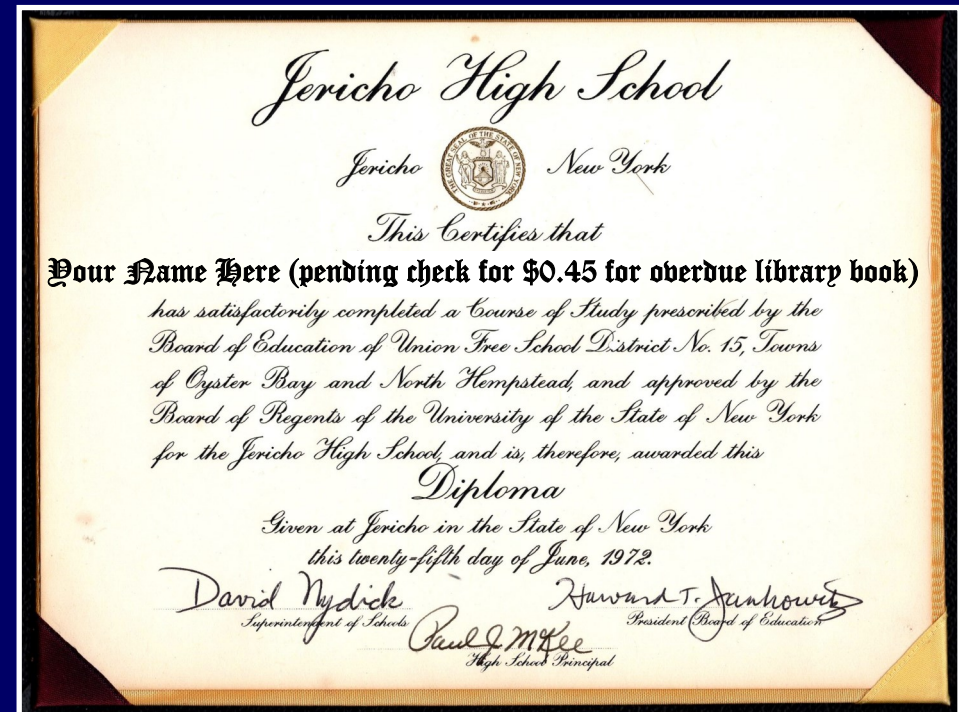 Jericho High School
Jericho New York
THE GREAT SEAL OF THE STATE OF NEW YORK
This Certifies that
Your Name Here (pending check for $0.45 for overdue library book)
has satisfactorily completed a Course of Study prescribed by the
Board of Education of Union Free School District No. 15, Towns
of Oyster Bay and North Hempstead, and approved by the
Board of Regents of the University of the State of New York
for the Jericho High School, and is, therefore, awarded this
Diploma
Given at Jericho in the State of New York
this twenty-fifth day of June, 1972.
David Nydick
Superintendent of Schools
Howard T. Jankowitz
President Board of Education
Paul J McKee
High School Principal